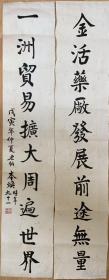 金活藥廠發展前途無量
一洲貿易擴大周遍世界
戊寅年仲夏
本煥
九十一